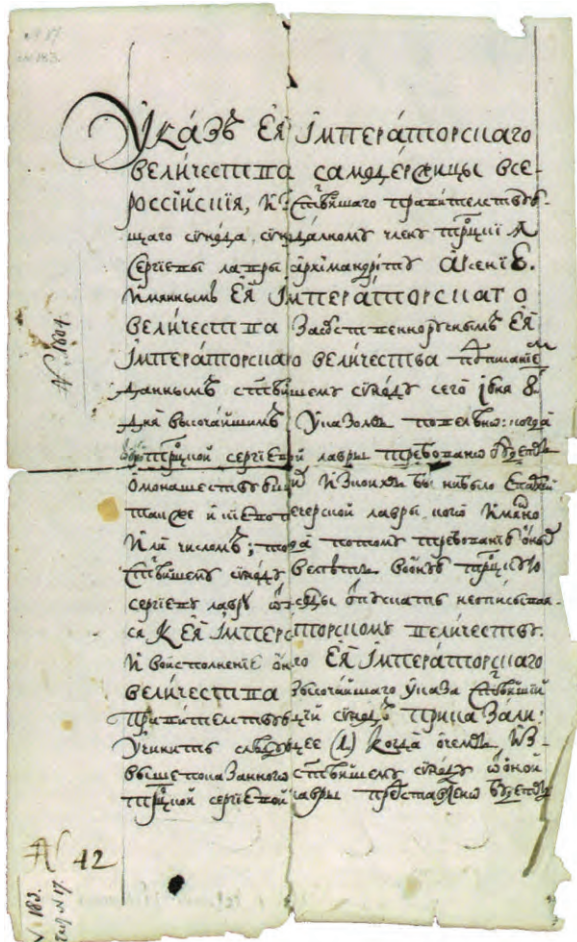 № 17
№ 183.
Указъ Ея Імператорскаго
величества самодержицы все-
россійскія, изъ Стѣйшаго правителствую-
щаго сүнода, сүнодалному члену Трцкія
Сергіевы лавры архімандріту Арсенію.
Имяннымъ Ея Імператорскаго
величества За собственноручнымъ Ея
Імператорскаго величества подписаніемъ
даннымъ стѣйшему сүноду сего іюня 8
дня высочайшимъ указомъ повелѣно: когда
Трцкой сергіевой лавры требовано будетъ
о монашествующихъ
также и кіевопечерской лавры, кого имянно
или числомъ; тогда потому требованію
стѣйшему сүноду велѣть въ оную Трцкую
сергіеву лавру отсюды отпускать неописывая-
ся к Ея Імператорскому величеству.
И во исполненіе онаго Ея Імператорскаго
величества высочайшаго указа Стѣйшій
Правителствующій сүнодъ приказали:
учинить слѣдующее (1) Когда о чемъ, из
вышепоказанного стѣйшему сүноду о оной
трцкой сергіевой лавры представлено будетъ
№ 1604
№ 42
№ 183.
№ 17.